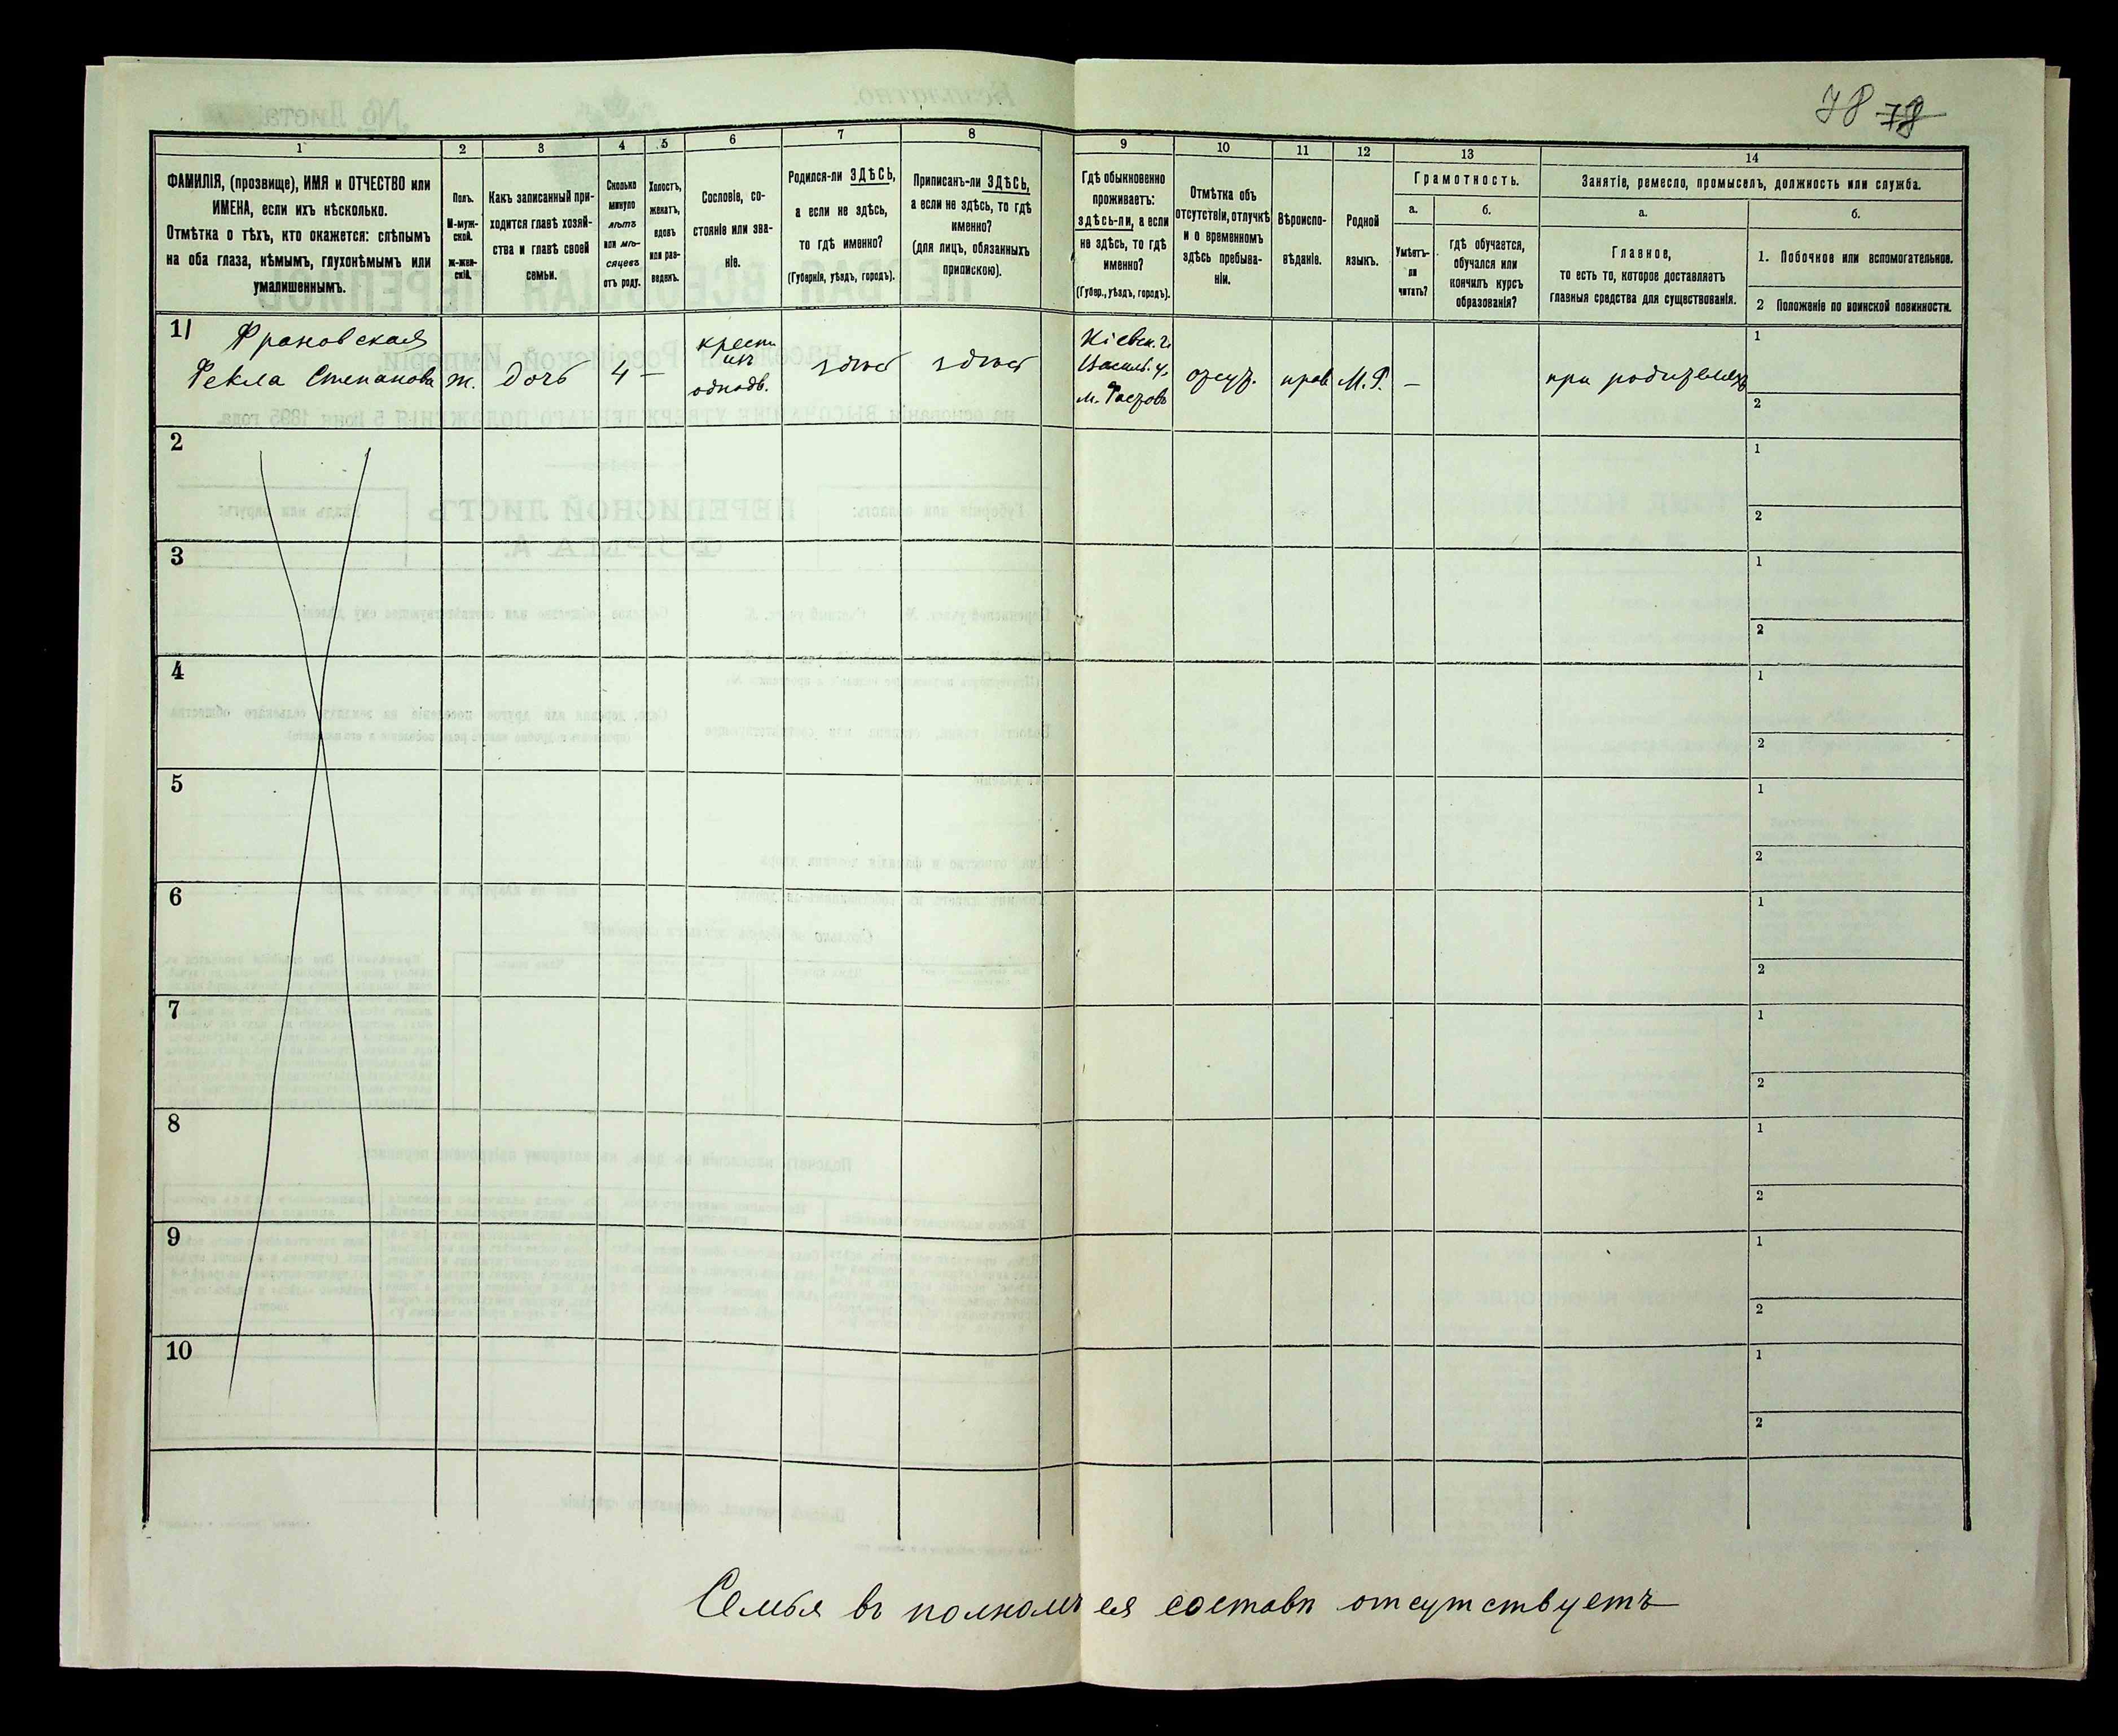 78 78
1 2 3 4 5 6 7 8 9 10 11 12 13 14
ФАМИЛІЯ, (прозвище), ИМЯ и ОТЧЕСТВО или
ИМЕНА, если ихъ нѣсколько.
Отмѣтка о тѣхъ, кто окажется: слѣпымъ
на оба глаза, нѣмымъ, глухонѣмымъ или
умалишеннымъ.
Полъ.
М-муж-
ской.
Ж-жен-
скій.
Какъ записанный при-
ходится главѣ хозяй-
ства и главѣ своей
семьи.
Сколько
минуло
лѣтъ
или мѣ-
сяцевъ
отъ роду.
Холостъ,
женатъ,
вдовъ
или раз-
веденъ.
Сословіе, со-
стояніе или зва-
ніе.
Родился-ли ЗДѢСЬ,
а если не здѣсь,
то гдѣ именно?
(Губернія, уѣздъ, городъ).
Приписанъ-ли ЗДѢСЬ,
а если не здѣсь, то гдѣ
именно?
(для лицъ, обязанныхъ
припискою).
Гдѣ обыкновенно
проживаетъ:
здѣсь-ли, а если
не здѣсь, то гдѣ
именно?
(Губер., уѣздъ, городъ).
Отмѣтка объ
отсутствіи, отлучкѣ
и о временномъ
здѣсь пребыва-
ніи.
Вѣроиспо-
вѣданіе.
Родной
языкъ.
Грамотность.
а.
Умѣетъ-
ли
читать?
б.
гдѣ обучается,
обучался или
кончилъ курсъ
образованія?
Занятіе, ремесло, промыселъ, должность или служба.
а.
Главное,
то есть то, которое доставляетъ
главныя средства для существованія.
б.
1. Побочное или вспомогательное.
2 Положеніе по воинской повинности.
1
Франовская
Фекла Степанова
ж.
дочь
4
—
крест.
изъ
однодв.
здѣсь
здѣсь
Кіевск. г.
Васильк. у.
м. Фастовъ
отсут.
прав
М. Р.
—
при родителяхъ
1
2
2
1
2
3
1
2
4
1
2
5
1
2
6
1
2
7
1
2
8
1
2
9
1
2
10
1
2
Семья въ полномъ ея составѣ отсутствуетъ